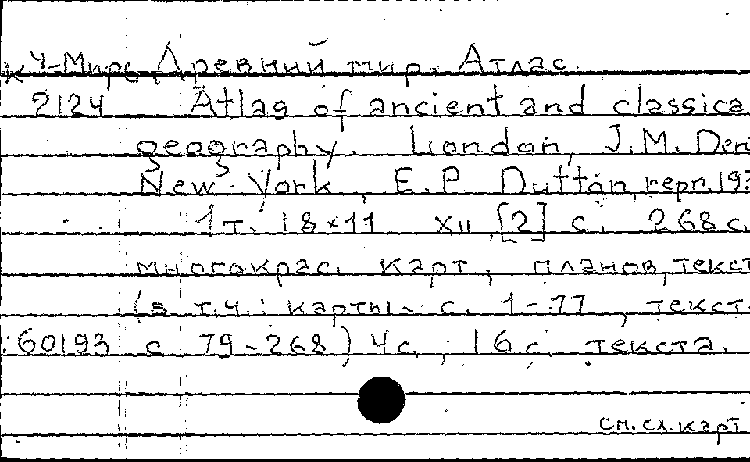 К Ч-Мирс Древний мир. Атлас.
2124 Atlas of ancient and classica
geography. London, J.M. Den
New-York, E.P. Dutton, repr. 193
1 т. 18×11 XII, [2] с. 268 с.
многокрас. карт, планов, текст
(в т.ч.: карты- с. 1-77, текст
:60193 с 79-268) 4 с., 16 с. текста.
см. сл. карт